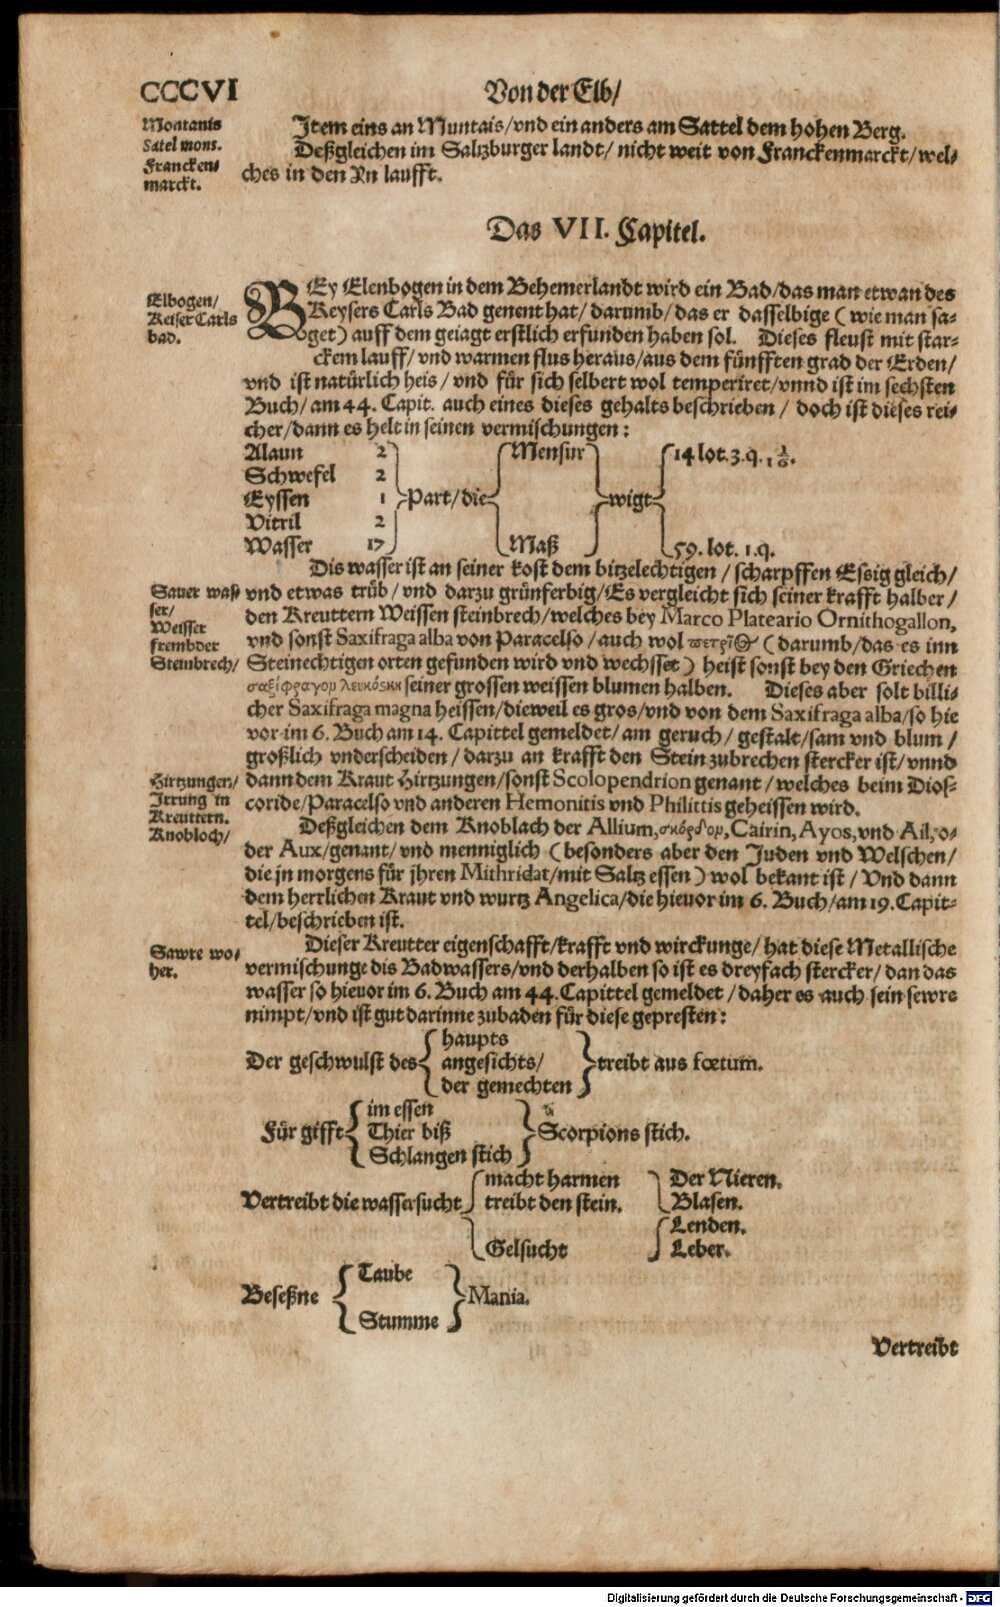 CCCVI Von der Elb/
Montanis
Satel mons.
Francken/
marckt.
Item eins an Muntais/vnd ein anders am Sattel dem hohen Berg.
Deßgleichen im Saltzburger landt/ nicht weit von Franckenmarckt/wel⸗
ches in den Yn laufft.
Das VII. Capitel.
Elbogen/
Keiser Carls
bad.
BEy Elenbogen in dem Behemerlandt wird ein Bad/das man etwan des
Keysers Carls Bad genent hat/ darumb/ das er dasselbige (wie man sa⸗
get) auff dem geiagt erstlich erfunden haben sol. Dieses fleust mit star⸗
ckem lauff/ vnd warmen flus heraus/aus dem fünfften grad der Erden/
vnd ist natürlich heis/ vnd für sich selbert wol temperiret/vnnd ist im sechsten
Buch/ am 44. Capit. auch eines dieses gehalts beschrieben/ doch ist dieses rei⸗
cher/dann es helt in seinen vermischungen:
Alaun 2 Mensur 14 lot. 3. q. 1 1/6.
Schwefel 2
Eyssen 1 Part/die wigt
Vitril 2
Wasser 17 Maß 59. lot. 1. q.
Dis wasser ist an seiner kost dem bitzelechtigen/ scharpffen Essig gleich/
Sauer was⸗
ser/
Weisser
frembder
Steinbrech/
vnd etwas trüb/ vnd darzu grünferbig/Es vergleicht sich seiner krafft halber/
den Kreuttern Weissen steinbrech/welches bey Marco Plateario Ornithogallon,
vnd sonst Saxifraga alba von Paracelso/auch wol (darumb/das es inn
Steinechtigen orten gefunden wird vnd wechsset) heist sonst bey den Griechen
seiner grossen weissen blumen halben. Dieses aber solt billi⸗
cher Saxifraga magna heissen/dieweil es gros/vnd von dem Saxifraga alba/so hie
vor im 6. Buch am 14. Capittel gemeldet/am geruch/ gestalt/sam vnd blum/
großlich vnderscheiden/ darzu an krafft den Stein zubrechen stercker ist/vnnd
Hirtzungen/
Irrung in
Kreuttern.
Knobloch/
dann dem Kraut Hirtzungen/sonst Scolopendrion genant/ welches beim Dios⸗
coride/Paracelso vnd anderen Hemonitis vnd Philittis geheissen wird.
Deßgleichen dem Knoblach der Allium, σκόρδομ, Cairin, Ayos, vnd Ail, o⸗
der Aux/genant/ vnd menniglich (besonders aber den Juden vnd Welschen/
die jn morgens für jhren Mithridat/mit Saltz essen) wol bekant ist/ Vnd dann
dem herrlichen Kraut vnd wurtz Angelica/die hieuor im 6. Buch/am 19. Capit⸗
tel/beschrieben ist.
Sawre wo⸗
her.
Dieser Kreutter eigenschafft/krafft vnd wirckunge/ hat diese Metallische
vermischunge dis Badwassers/vnd derhalben so ist es dreyfach stercker/ dan das
wasser so hieuor im 6. Buch am 44. Capittel gemeldet/daher es auch sein sewre
nimpt/vnd ist gut darinne zubaden für diese gepresten:
haupts
Der geschwulst des angesichts/ treibt aus fœtum.
der gemechten
im essen
Für gifft Thier biß Scorpions stich.
Schlangen stich
macht harmen Der Nieren.
Vertreibt die wassersucht treibt den stein. Blasen.
Lenden.
Gelsucht Leber.
Taube
Beseßne Mania.
Stumme
Vertreibt
Digitalisierung gefördert durch die Deutsche Forschungsgemeinschaft - DFG